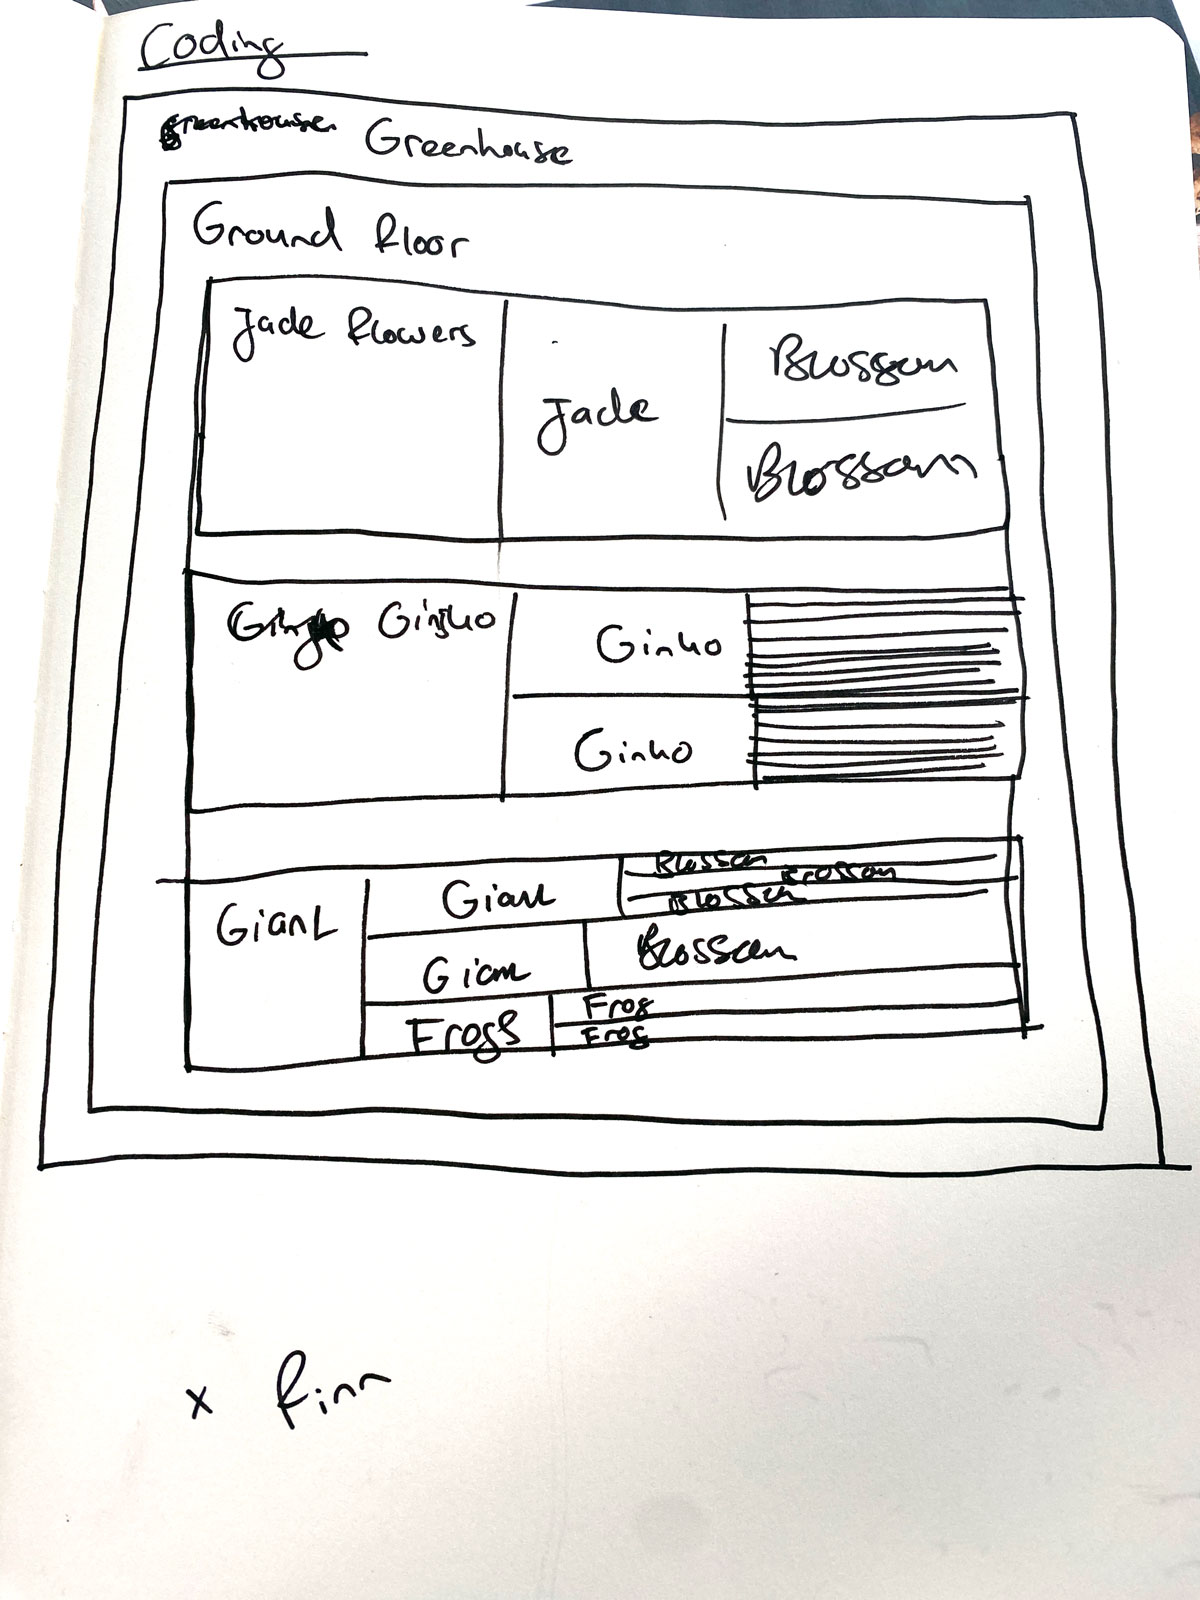 Coding
greenhouse Greenhouse
Ground floor
Jade flowers
Jade
Blossom
Blossom
Ginko
Ginko
Ginko
Giant
Giant
Blossom
Blossom
Blossom
Giant
Blossom
Frogs
Frog
Frog
x finn